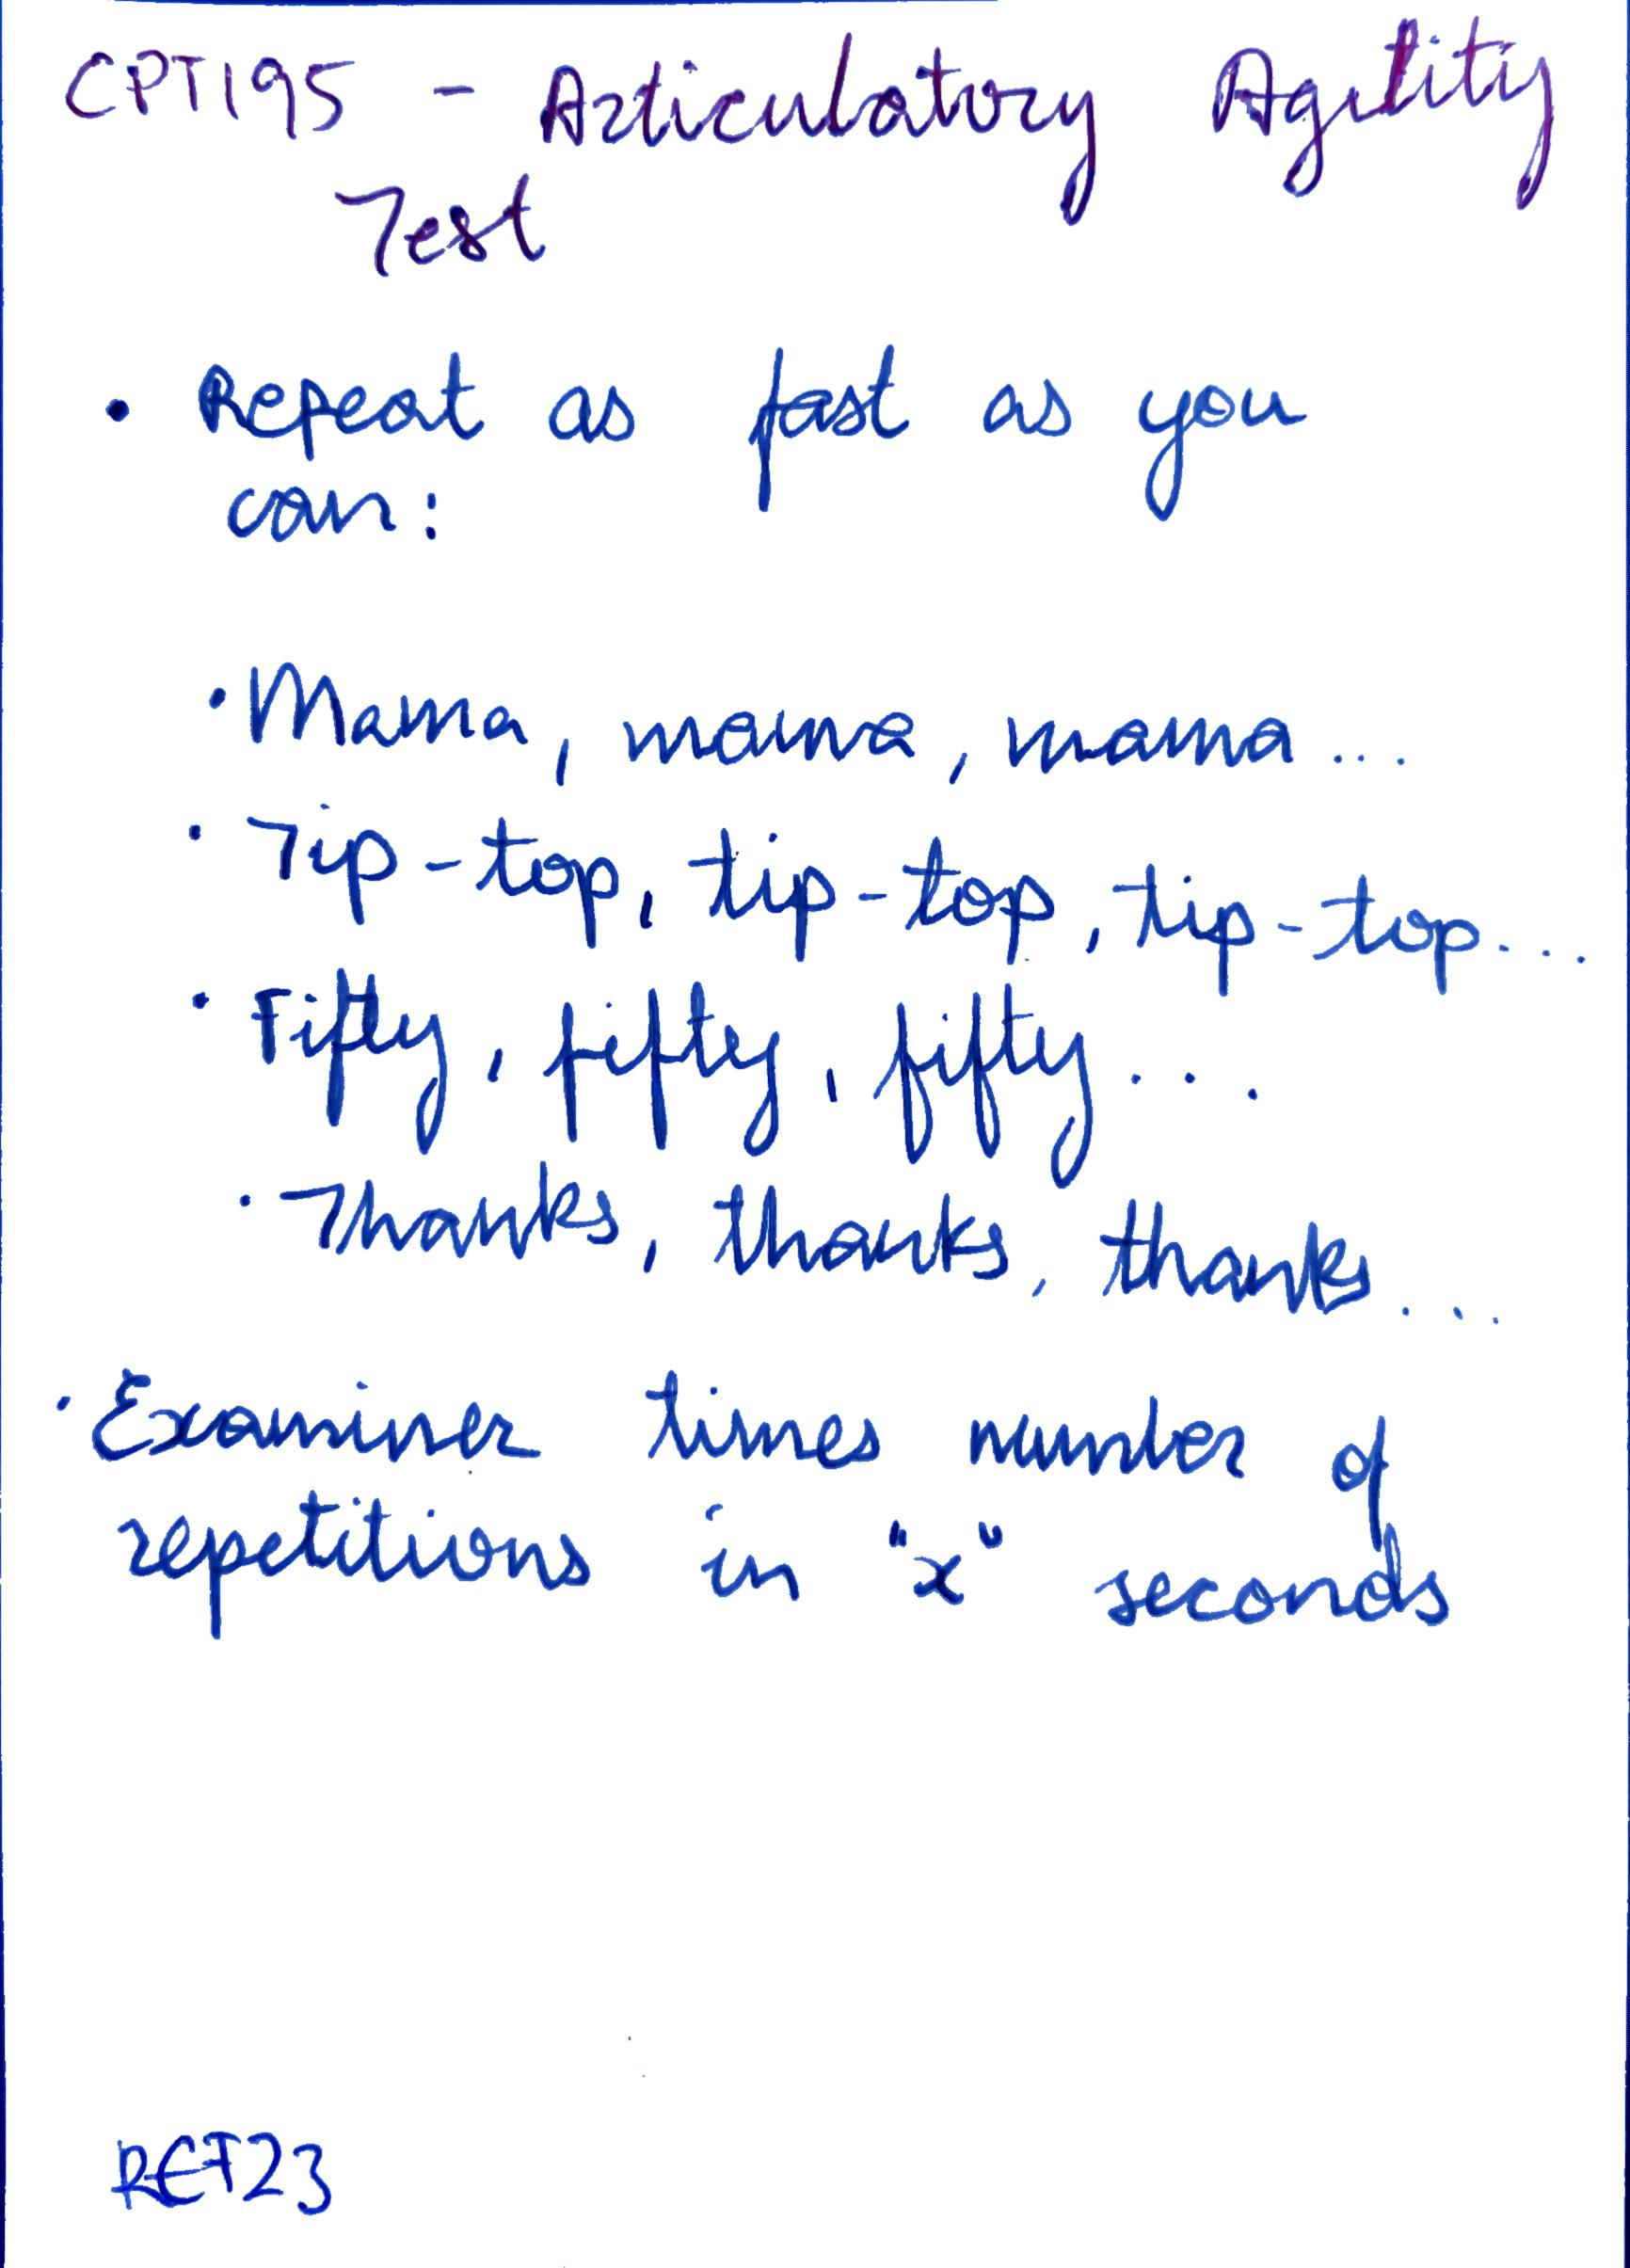 CPT195 - Articulatory Agility
Test
• Repeat as fast as you
can:
• Mama, mama, mama...
• Tip-top, tip-top, tip-top...
• Fifty, fifty, fifty...
• Thanks, thanks, thanks...
• Examiner times number of
repetitions in "x" seconds
RET23